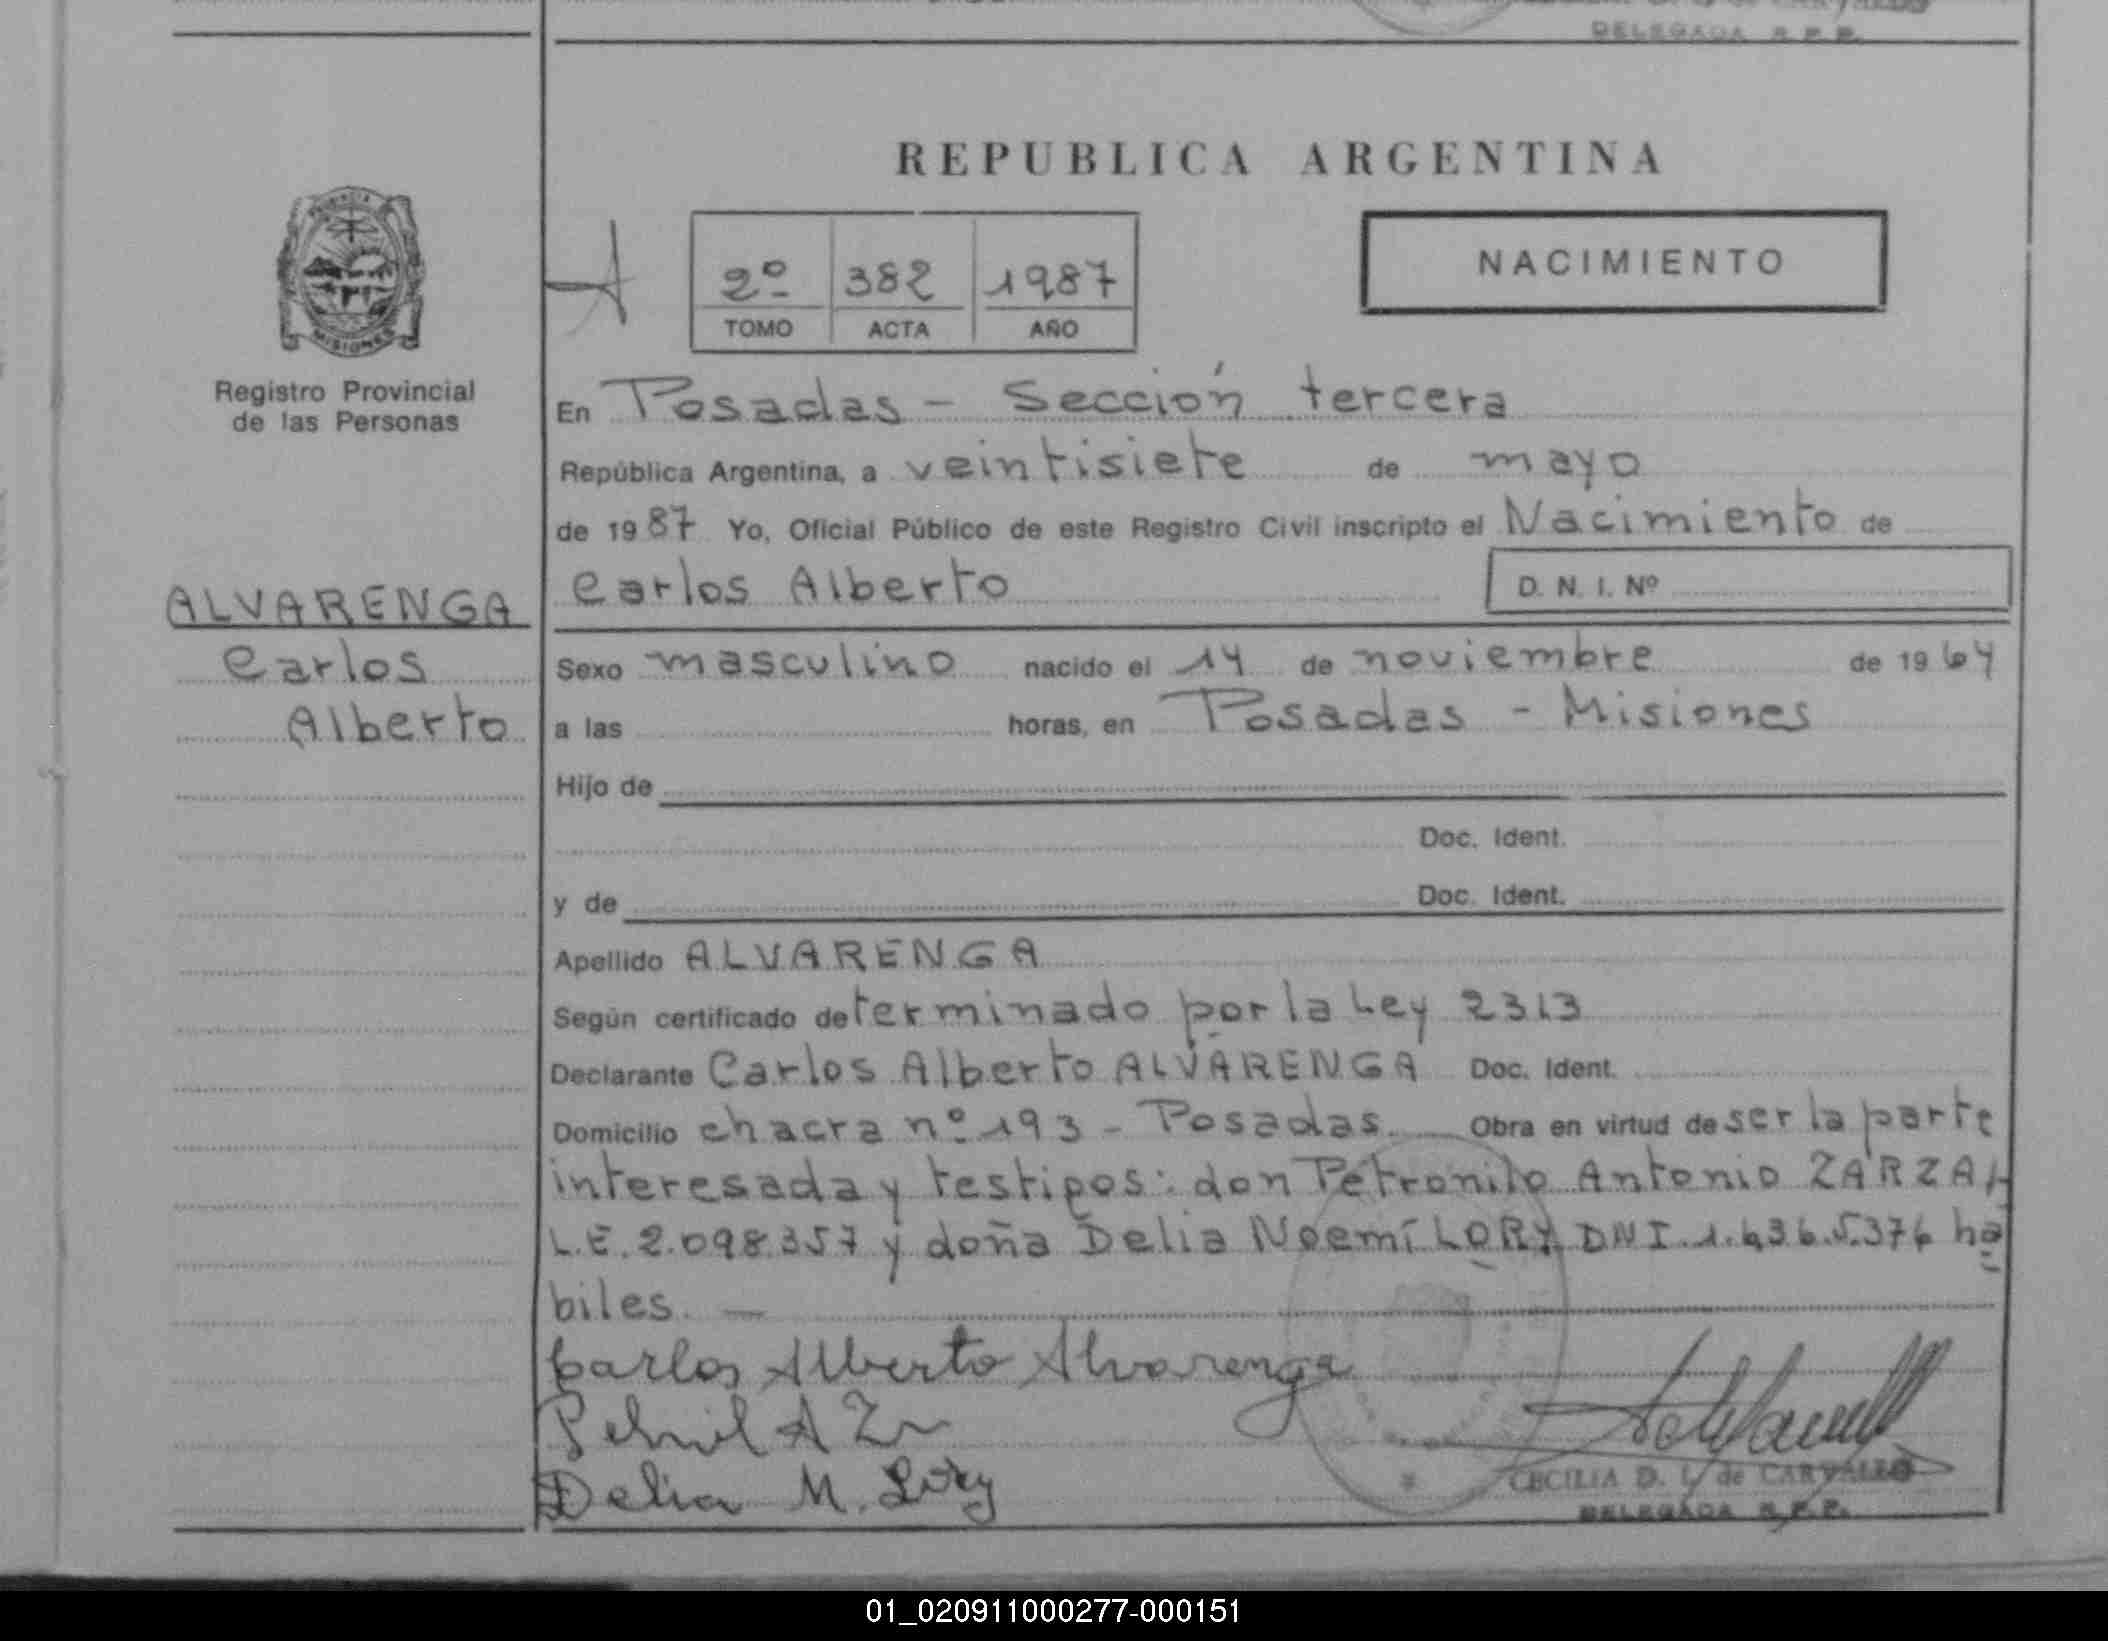 DELEGADA R.P.P.
REPUBLICA ARGENTINA
PROVINCIA
MISIONES
Registro Provincial
de las Personas
2º 382 1987
TOMO ACTA AÑO
NACIMIENTO
En Posadas - Sección tercera
República Argentina, a veintisiete de mayo
de 1987 Yo, Oficial Público de este Registro Civil inscripto el Nacimiento de
Carlos Alberto D. N. I. Nº
ALVARENGA
Carlos
Alberto
Sexo masculino nacido el 14 de noviembre de 1964
a las horas, en Posadas - Misiones
Hijo de
Doc. Ident.
y de Doc. Ident.
Apellido ALVARENGA
Según certificado determinado por la Ley 2313
Declarante Carlos Alberto ALVARENGA Doc. Ident.
Domicilio chacra nº 193 - Posadas. Obra en virtud de ser la parte
interesada y testigos: don Petronilo Antonio ZARZA
L.E. 2.098.357 y doña Delia Noemí LORY DNI ha
biles. —
Carlos Alberto Alvarenga
Delia M. Lory
CECILIA D. L. de CARVALLO
DELEGADA R.P.P.
01_020911000277-000151